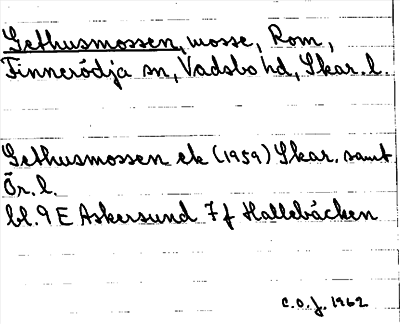 Gethusmossen, mosse, Rom,
Finnerödja sn, Vadsbo hd, Skar. l.
Gethusmossen ek (1959) Skar. samt
Ör. l.
bl. 9 E Askersund 7 f Hallebäcken
C.O.J. 1962